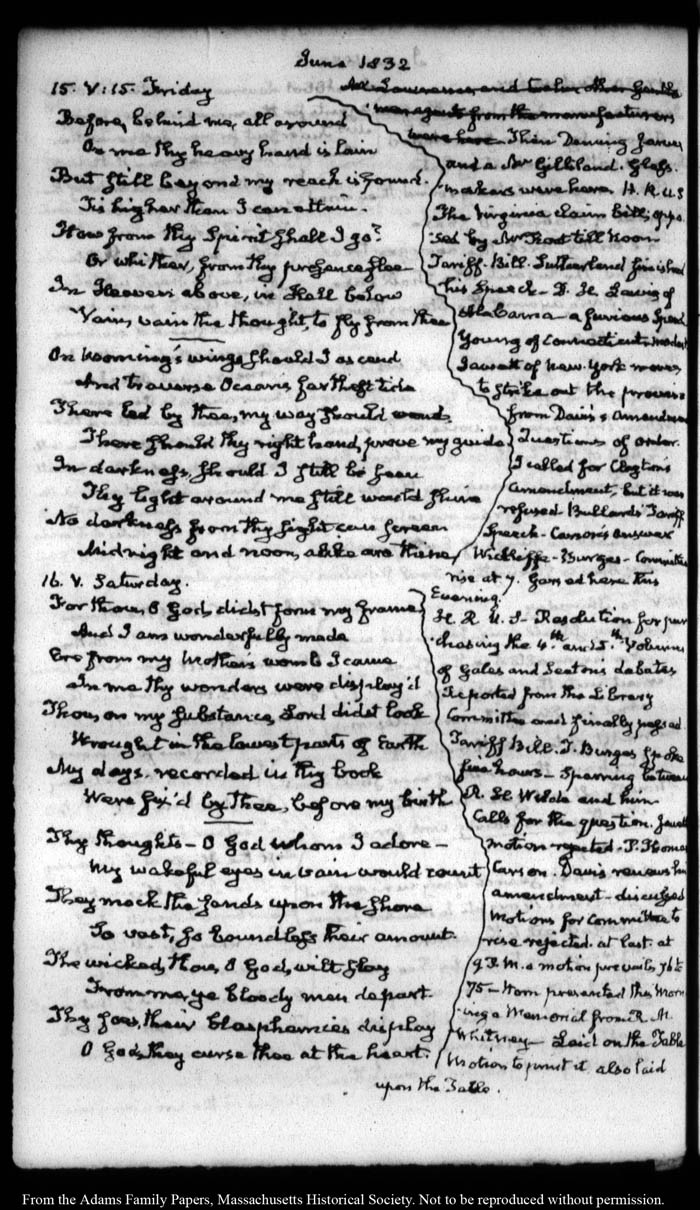 June 1832
15. V:15. Friday
Before, behind me, all around
On me thy heavy hand is lain
But still beyond my reach is found.
Tis higher than I can attain.
How from thy Spirit shall I go?
Or whither, from thy presence flee
In Heaven above, in Hell below
Vain, vain the thought, to fly from thee
On morning's wings should I ascend
And traverse Oceans farthest tide
There led by thee, my way should wend
There should thy right hand, prove my guide
In darkness, should I still be seen
Thy light around me still would shine
No darkness from thy sight can screen
Midnight and noon, alike are thine
Mr Lawrence and twelve other Gentle
men from the manufacturers
were here. Then Deming Jarves
and a Mr Gilliland. Glass-
makers were here. H. R. U.S
The Virginia claim bill, oppo
sed by Mr Root till Noon
Tariff-Bill. Sutherland finished
his Speech – D. H. Lewis of
Alabama – a furious Speech
Young of Connecticut, modest
Jewett of New-York moves
to strike out the proviso
from Davis's Amendmen
Questions of order.
I called for Clayton's
amendment, but it was
refused Bullard's Tariff
Speech – Carson's answer
Wickliffe – Burges – Committee
rise at 7. here this
Evening.
16. V. Saturday.
For thou, O God, didst form my frame
And I am wonderfully made
Ere from my Mothers womb I came
In me thy wonders were display'd
Thou, on my substance, Lord didst look
Wrought in the lowest parts of Earth
My days, recorded in thy book
Were fix'd by thee, before my birth
Thy thoughts – O God whom I adore –
My wakeful eyes in vain would count
They mock the sands upon the shore
So vast, so boundless their amount.
The wicked, thou, O God, wilt slay
From me, ye bloody men depart.
Thy foes, their blasphemies display
O God, they curse thee at the heart.
H. R. U. S – Resolution for pur
chasing the 4.th and 5.th Volumes
of Gales and Seatons debates
reported from the Library
Committee and finally passed
Tariff Bill. T. Burges spoke
five hours – Sparring between
R. H. Wilde and him
Calls for the question. Jewett
motion rejected – P. Thomas
Carson. Davis renews his
amendment – discussed
Motions for Committee to
rise rejected. at last. at
9 P.M. a motion prevails 76 to
75 – presented this morn
ing a Memorial from R. M.
Whitney – Laid on the Table
Motion to print it also laid
upon the Table.
From the Adams Family Papers, Massachusetts Historical Society. Not to be reproduced without permission.